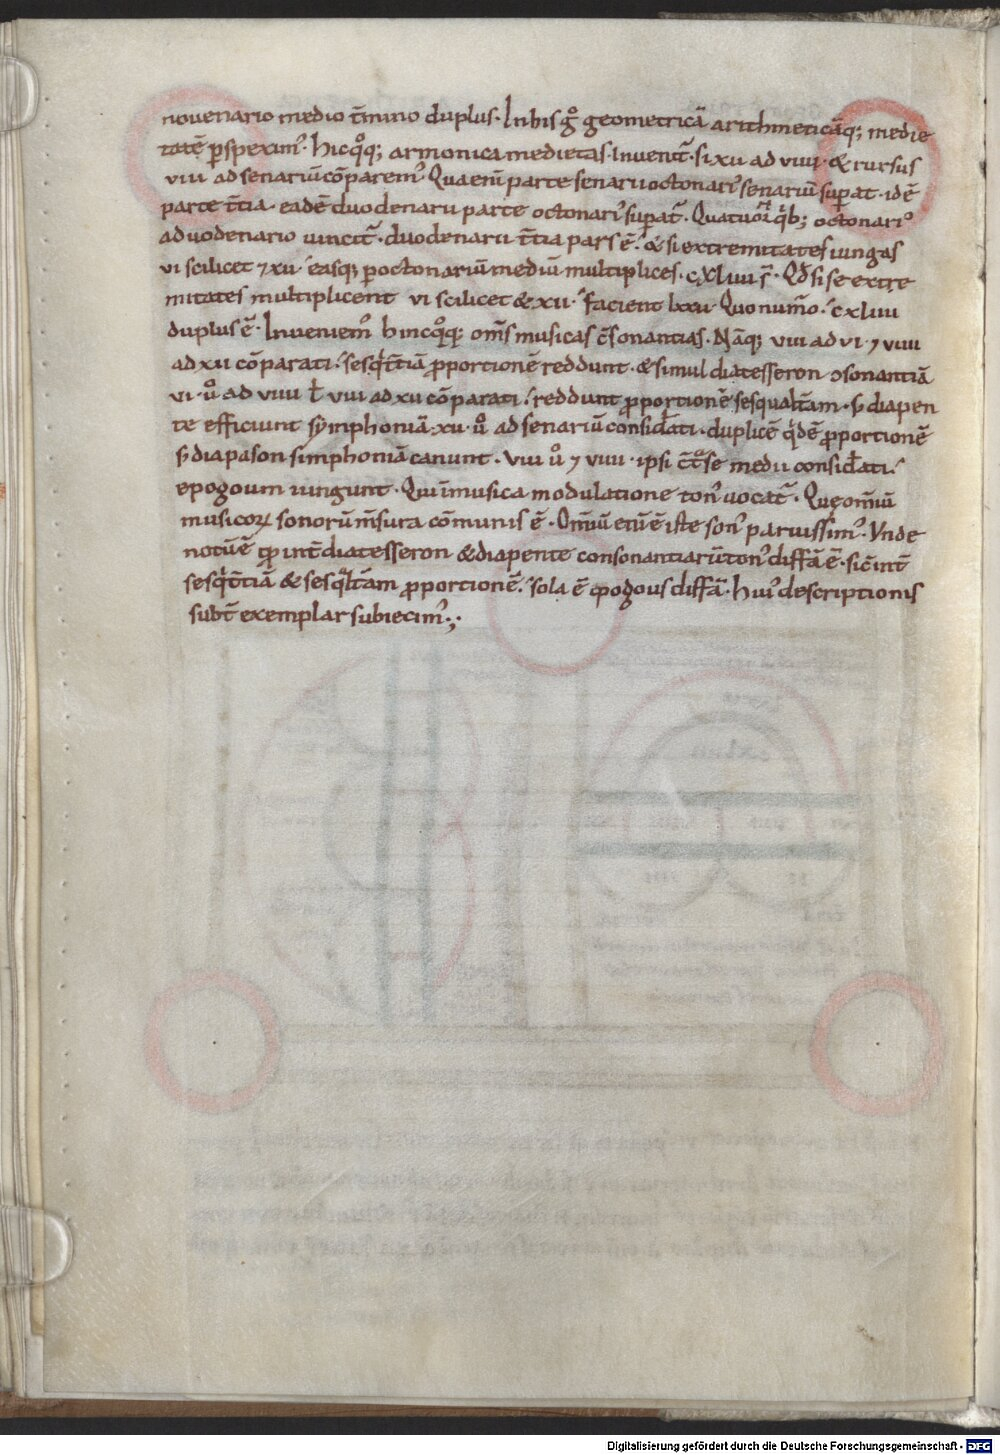 novenario medio t̄mino duplus. In his gͦ geometricā arithmeticāq; medie
tatē ꝑspexim᾽. hicqͦq; armonica medietas invenit᷑. si xii ad viiii. & rursus
viii ad senariū cōparem᾽. Qua eni parte senarii octonari᾽ senariū suꝑat. idē
parte t̄tia. eadē duodenarii parte octonari᾽ suꝑat᷑. Quatuor q̇b; octonari᾽
a duodenario vincit᷑. duodenarii t̄tia pars ē. & si extremitates iungas
vi scilicet ⁊ xii. easq; ꝑ octonariū mediū multiplices. cxliiii s᷑. Qd̄ si se extre
mitates multiplicent vi scilicet & xii. facient lxxii. Quo num̄o. cxliiii
duplus ē. Inveniem᾽ hincqͦq; om̄s musicas c̄sonantias. Nāq; viii ad vi. ⁊ viiii
ad xii cōparati. sesq̇t̄tiā ꝓportionē reddunt. & simul diatesseron ↄsonantiā
vi. uͦ ad viiii ł viii ad xii cōparati. reddunt ꝓportionē sesqualt̄am. s; diapen
te efficiunt symphoniā. xii. uͦ ad senariū considāti. duplicē q̇dē ꝓportionē
s; diapason simphoniā canunt. viii uͦ ⁊ viiii. ipsi c̄t͛ se medii considāti.
epogoum iungunt. Qui ī musica modulatione ton᾽ vocat᷑. Quę om̄iū
musicoꝝ sonorū m̄sura cōmunis ē. Om̄iū eni ē iste son᾽ parvissim᾽. Vnde
notū ē qđ int̄ diatesseron & diapente consonantiarū ton᾽ diff̄a ē. sic int̄
sesq̇t̄tiā & sesq̇lt̄am ꝓportionē. sola ē epogous diff̄a. hui᾽ descriptionis
subt̄ exemplar subiecim᾽.;.
Digitalisierung gefördert durch die Deutsche Forschungsgemeinschaft - DFG